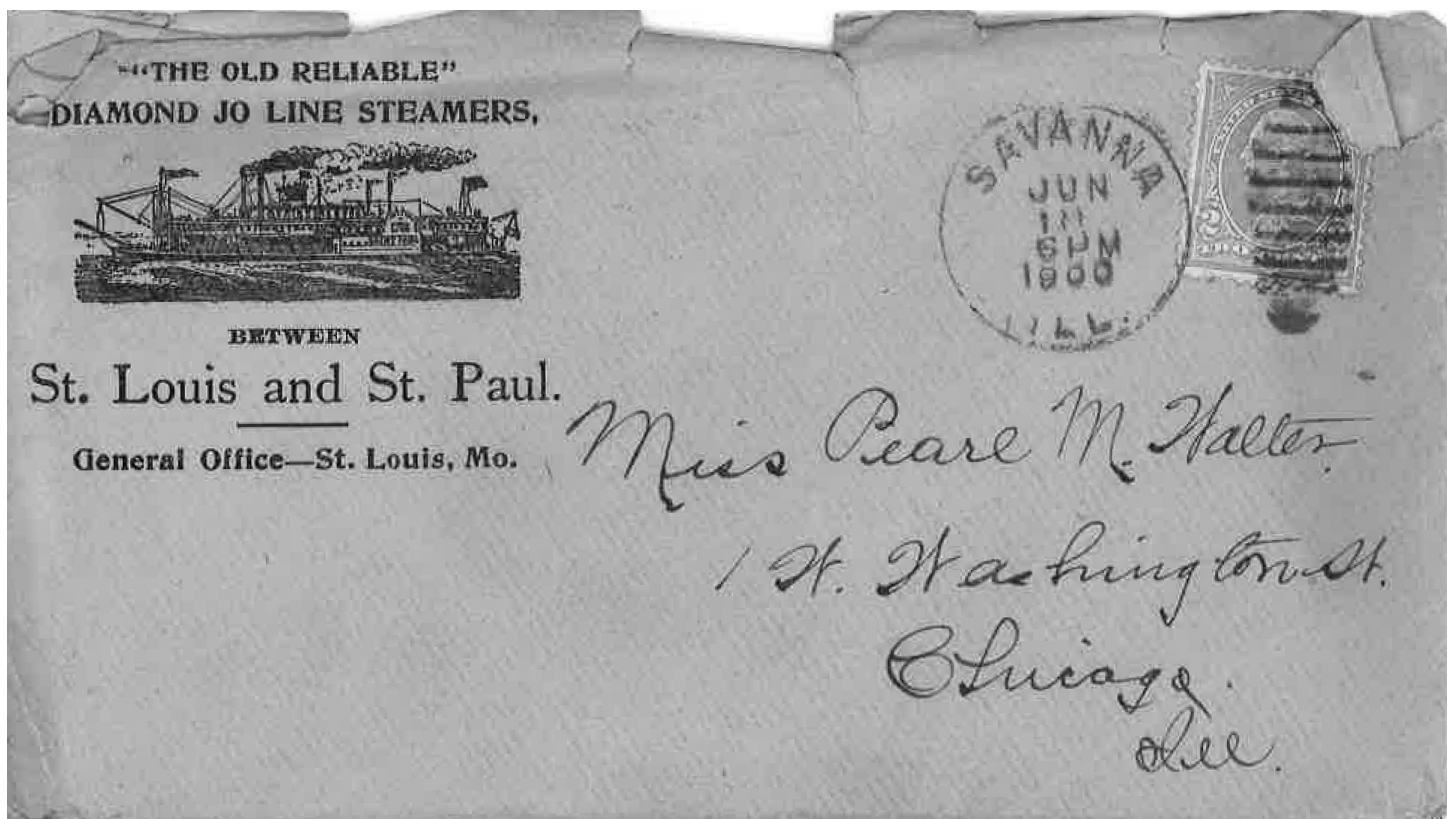 "THE OLD RELIABLE"
DIAMOND JO LINE STEAMERS,
BETWEEN
St. Louis and St. Paul.
General Office—St. Louis, Mo.
SAVANNA
JUN
6 PM
1900
ILL.
2
Miss Pearl M. Walter
1 W. Washington St.
Chicago.
Ill.